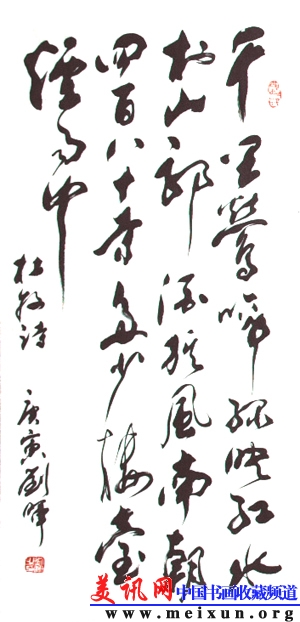 千里鶯啼绿映红水
村山郭酒旗風南朝
四百八十寺多少樓臺
煙雨中
杜牧诗 庚寅劉晖
美讯网 中国书画收藏频道
www.meixun.org